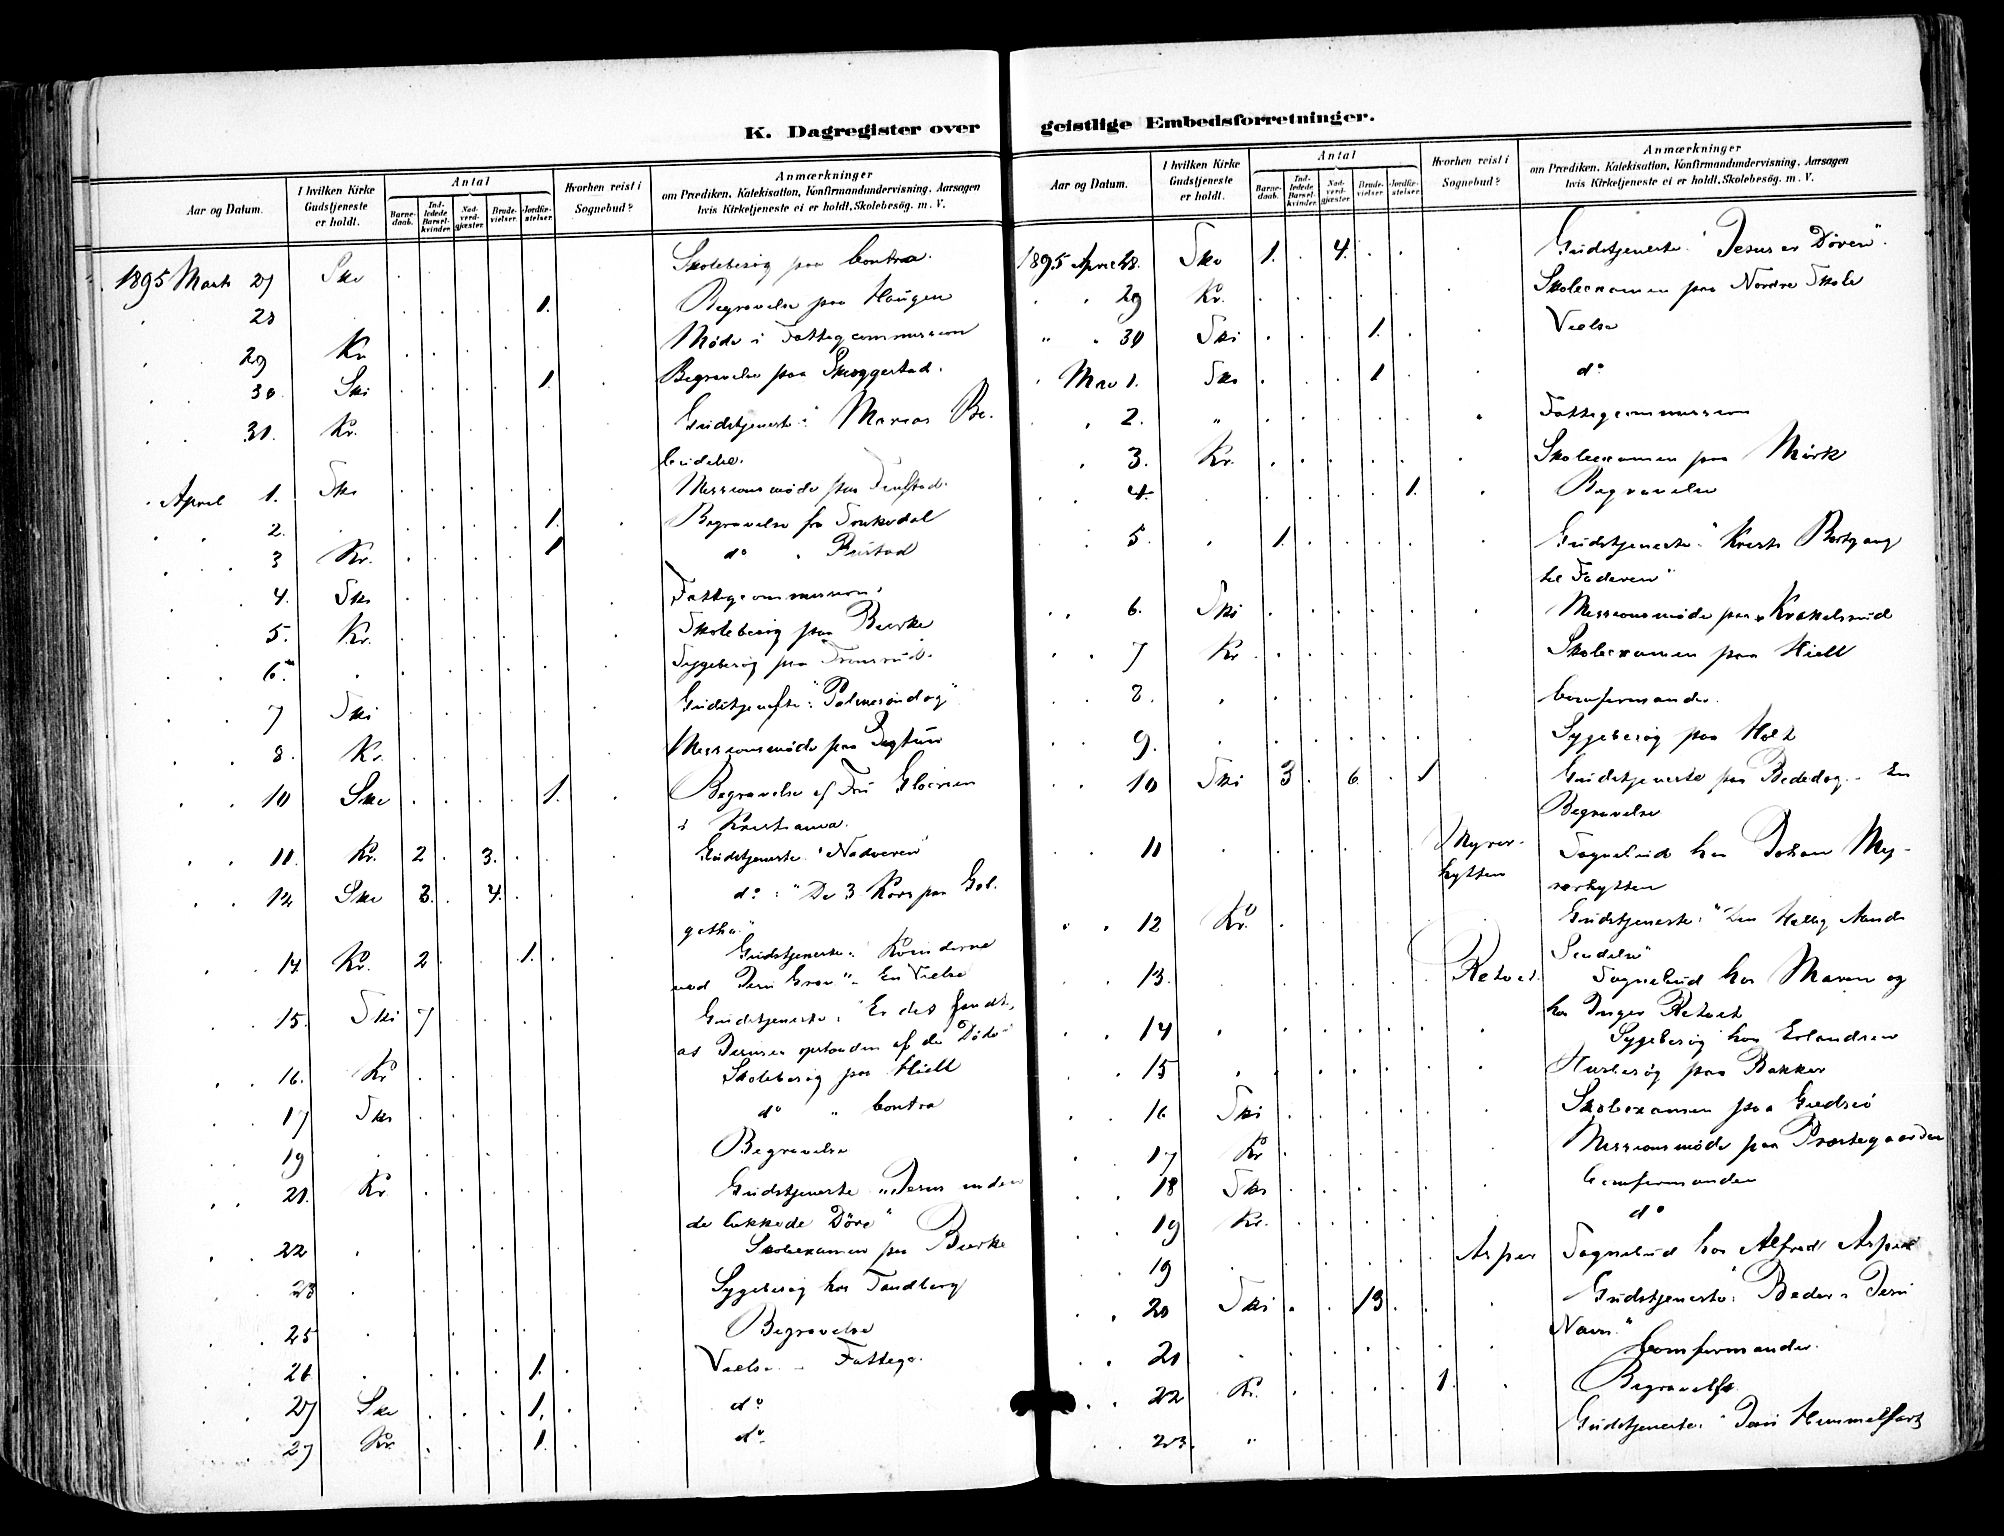 K. Dagregister over geistlige Embedsforretninger.
Aar og Datum. I hvilken Kirke Gudstjeneste er holdt. Antal Barnedaab. Indledede Barselkvinder. Nadverdgjæster. Brudevielser. Jordfæstelser. Hvorhen reist i Sognebud? Anmærkninger om Prædiken, Katekisation, Konfirmandundervisning, Aarsagen hvis Kirketjeneste ei er holdt, Skolebesøg. m. V.
1895 Marts 27 Ski Skolebesøg paa Contra.
28 1. Begravelse paa Haugen
29 Kr Møde i Fattigcommission
30 Ski 1. Begravelse paa Skoggestad.
31. Kr. Gudstjeneste: Marias Be-
budelse.
April 1. Ski Missionsmøde paa Finstad.
2. 1. Begravelse fra
3 Kr. 1 do " Rustad
4. Ski Fattigcommission.
5. Kr. Skolebesøg paa Bierke
6. Sygebesøg paa
7 Ski Gudstjeneste: "Palmesøndag"
8. Kr. Missionsmøde paa
10 Ski 1. Begravelse af Fru
i Kristiania.
11. Kr. 2 3. Gudstjeneste. "Nadveren"
12 Ski 3. 4. do : "De 3 Kors paa Gol-
gatha."
14 Kr. 2 1. Gudstjeneste: Kvinderne
ved Jesu Grav" - En Vielse
15. Ski 7 Gudstjeneste: "Er det sandt,
at Jesus er opstanden af de Døde"
16. Kr Skolebesøg paa Hiell
17 Ski do " Contra
19 Begravelse
21. Kr. Gudstjeneste "Jesus inden
de lukkede Døre"
22 Skoleexamen paa Bierke
23 Sygebesøg hos Tandberg
25 Begravelse
26 1. Vielse - Fattigc.
27 Ski 1. do
27 Kr. 1. do
K. Dagregister over geistlige Embedsforretninger.
Aar og Datum. I hvilken Kirke Gudstjeneste er holdt. Antal Barnedaab. Indledede Barselkvinder. Nadverdgjæster. Brudevielser. Jordfæstelser. Hvorhen reist i Sognebud? Anmærkninger om Prædiken, Katekisation, Konfirmandundervisning, Aarsagen hvis Kirketjeneste ei er holdt, Skolebesøg. m. V.
1895 April 28. Ski 1. 4. Gudstjeneste. "Jesus er Døren".
29 Kr. Skoleexamen paa Nordre Skole
30 Ski 1. Vielse
Mai 1. Ski 1 do
2. " Fattigcommission
3. Kr. Skoleexamen paa Mørk
4. 1. Begravelse
5. 1. Gudstjeneste. "Kristi Bortgang
til Faderen"
6. Ski Missionsmøde paa Krakelsrud
7 Kr Skoleexamen paa Hiell
8. Comfermander.
9. Sygebesøg paa Holt
10 Ski 3 6 1 Gudstjeneste paa Bededag. - En
Begravelse
11 Myrer-
hytten Sognebud hos Johan My-
rerhytten
12 Kr. Gudstjeneste: "Den Hellig Aands
Sendelse"
13. Retvet Sognebud hos Maren og
hos Inger Retvet
14 Sygebesøg hos Erlandsen
15 Husbesøg paa Bakker
16 Ski Skoleexamen paa
17 Kr Missionsmøde paa Præstegaarden
18 Ski Comfermander
19 Kr. do
19 Asper Sognebud hos Alfred Asper
20 Ski 13 Gudstjeneste: "Beder i Jesu
Navn."
21 Comfermander.
22 Kr. 1. Begravelse
23. " Gudstjeneste. "Jesu Himmelfart